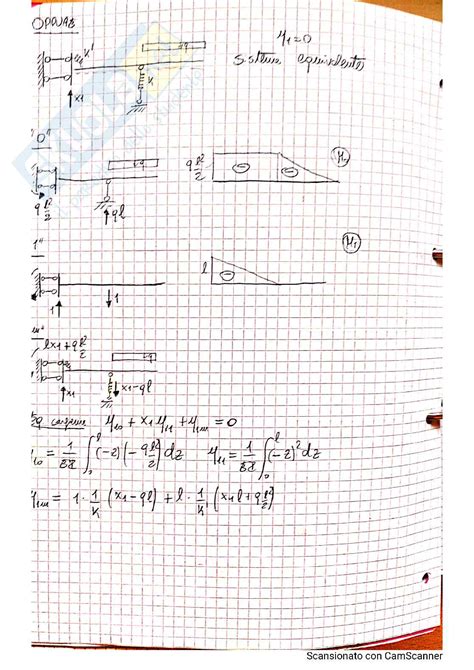 η₁=0
Sistema equivalente
K'
q
K
x1
"0"
q
q l²/2
M₀
q l²/2
ql
1"
M₁
l
1
1
lx1+q l²/2
q
x1
x1-ql
Eq congruenza η₁₀ + x₁ η₁₁ + η₁ᵤₙ = 0
η₁₀ = 1/EI ∫₀ˡ (-z)(-q l²/2) dz η₁₁ = 1/EI ∫₀ˡ (-z)² dz
= 1 · 1/K (x1-ql) + l · 1/K' (x1l + q l²/2)
Scansionato con CamScanner